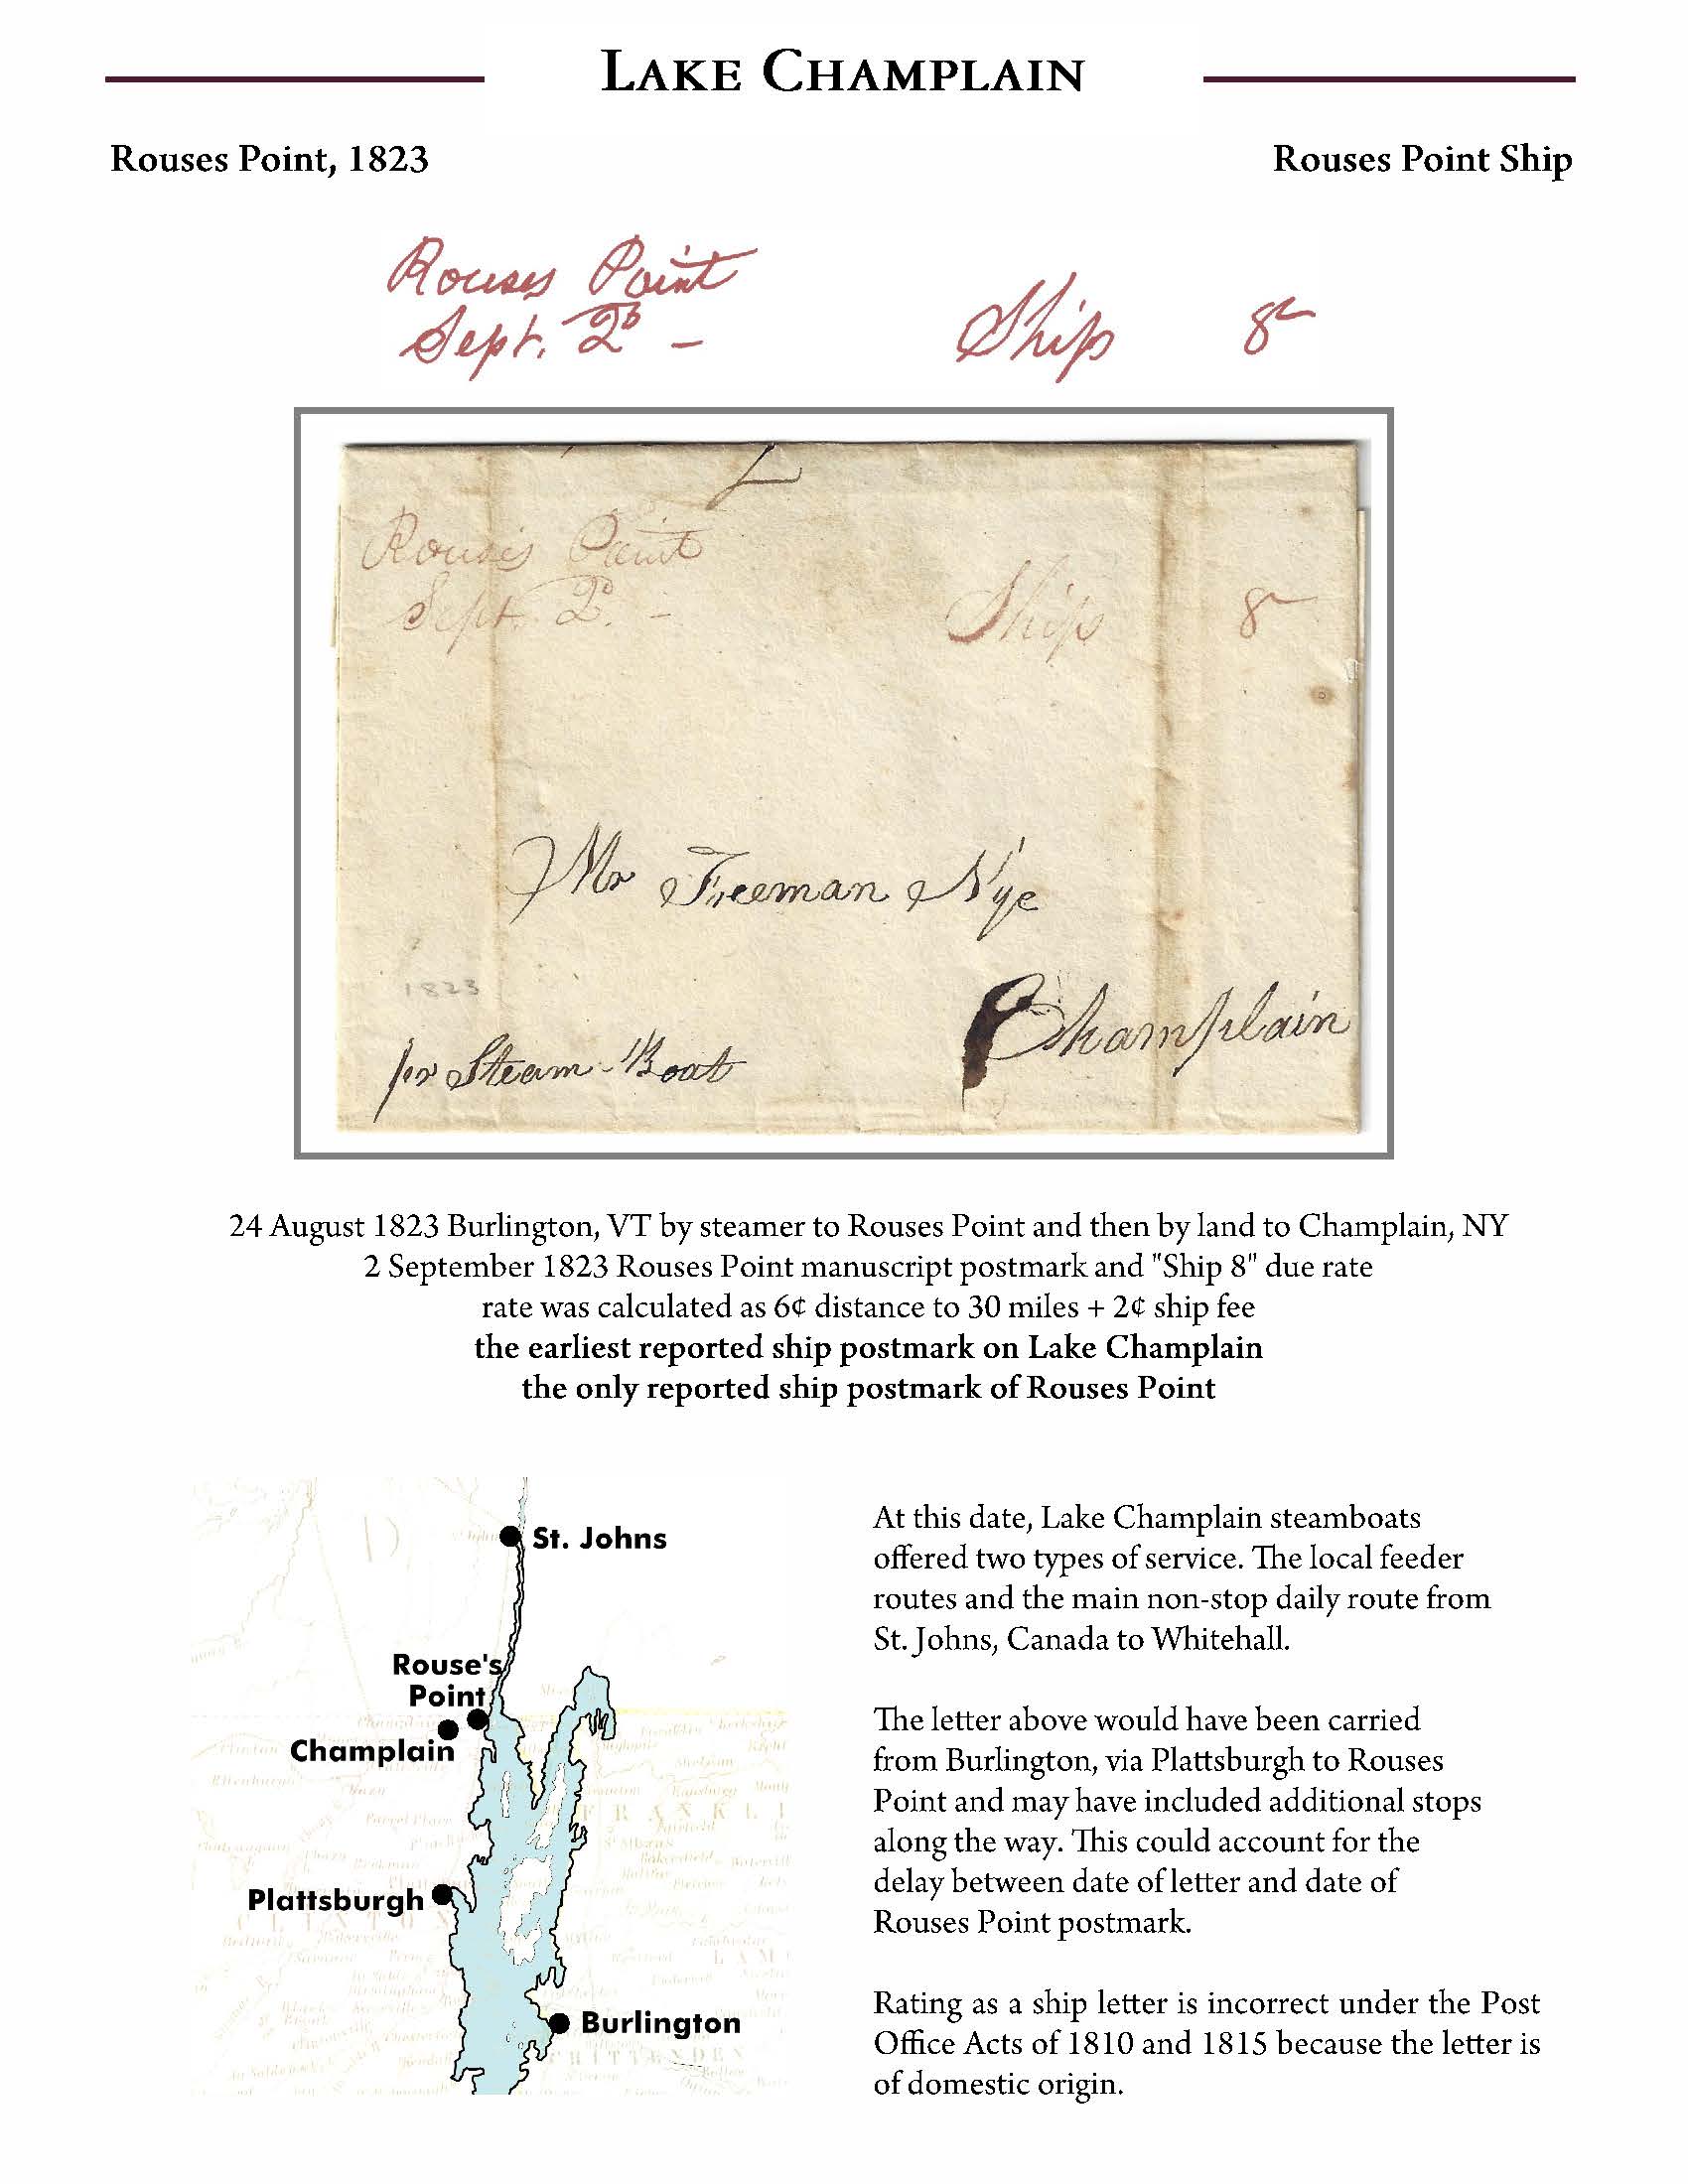 LAKE CHAMPLAIN
Rouses Point, 1823
Rouses Point Ship
Rouses Point
Sept. 2ᵈ –
Ship 8
Rouses Point
Sept. 2ᵈ. –
Ship 8
Mr Freeman Nye
1823
Champlain
pr Steam-Boat
24 August 1823 Burlington, VT by steamer to Rouses Point and then by land to Champlain, NY
2 September 1823 Rouses Point manuscript postmark and "Ship 8" due rate
rate was calculated as 6¢ distance to 30 miles + 2¢ ship fee
the earliest reported ship postmark on Lake Champlain
the only reported ship postmark of Rouses Point
St. Johns
Rouse's
Point
Champlain
Plattsburgh
Burlington
At this date, Lake Champlain steamboats
offered two types of service. The local feeder
routes and the main non-stop daily route from
St. Johns, Canada to Whitehall.
The letter above would have been carried
from Burlington, via Plattsburgh to Rouses
Point and may have included additional stops
along the way. This could account for the
delay between date of letter and date of
Rouses Point postmark.
Rating as a ship letter is incorrect under the Post
Office Acts of 1810 and 1815 because the letter is
of domestic origin.